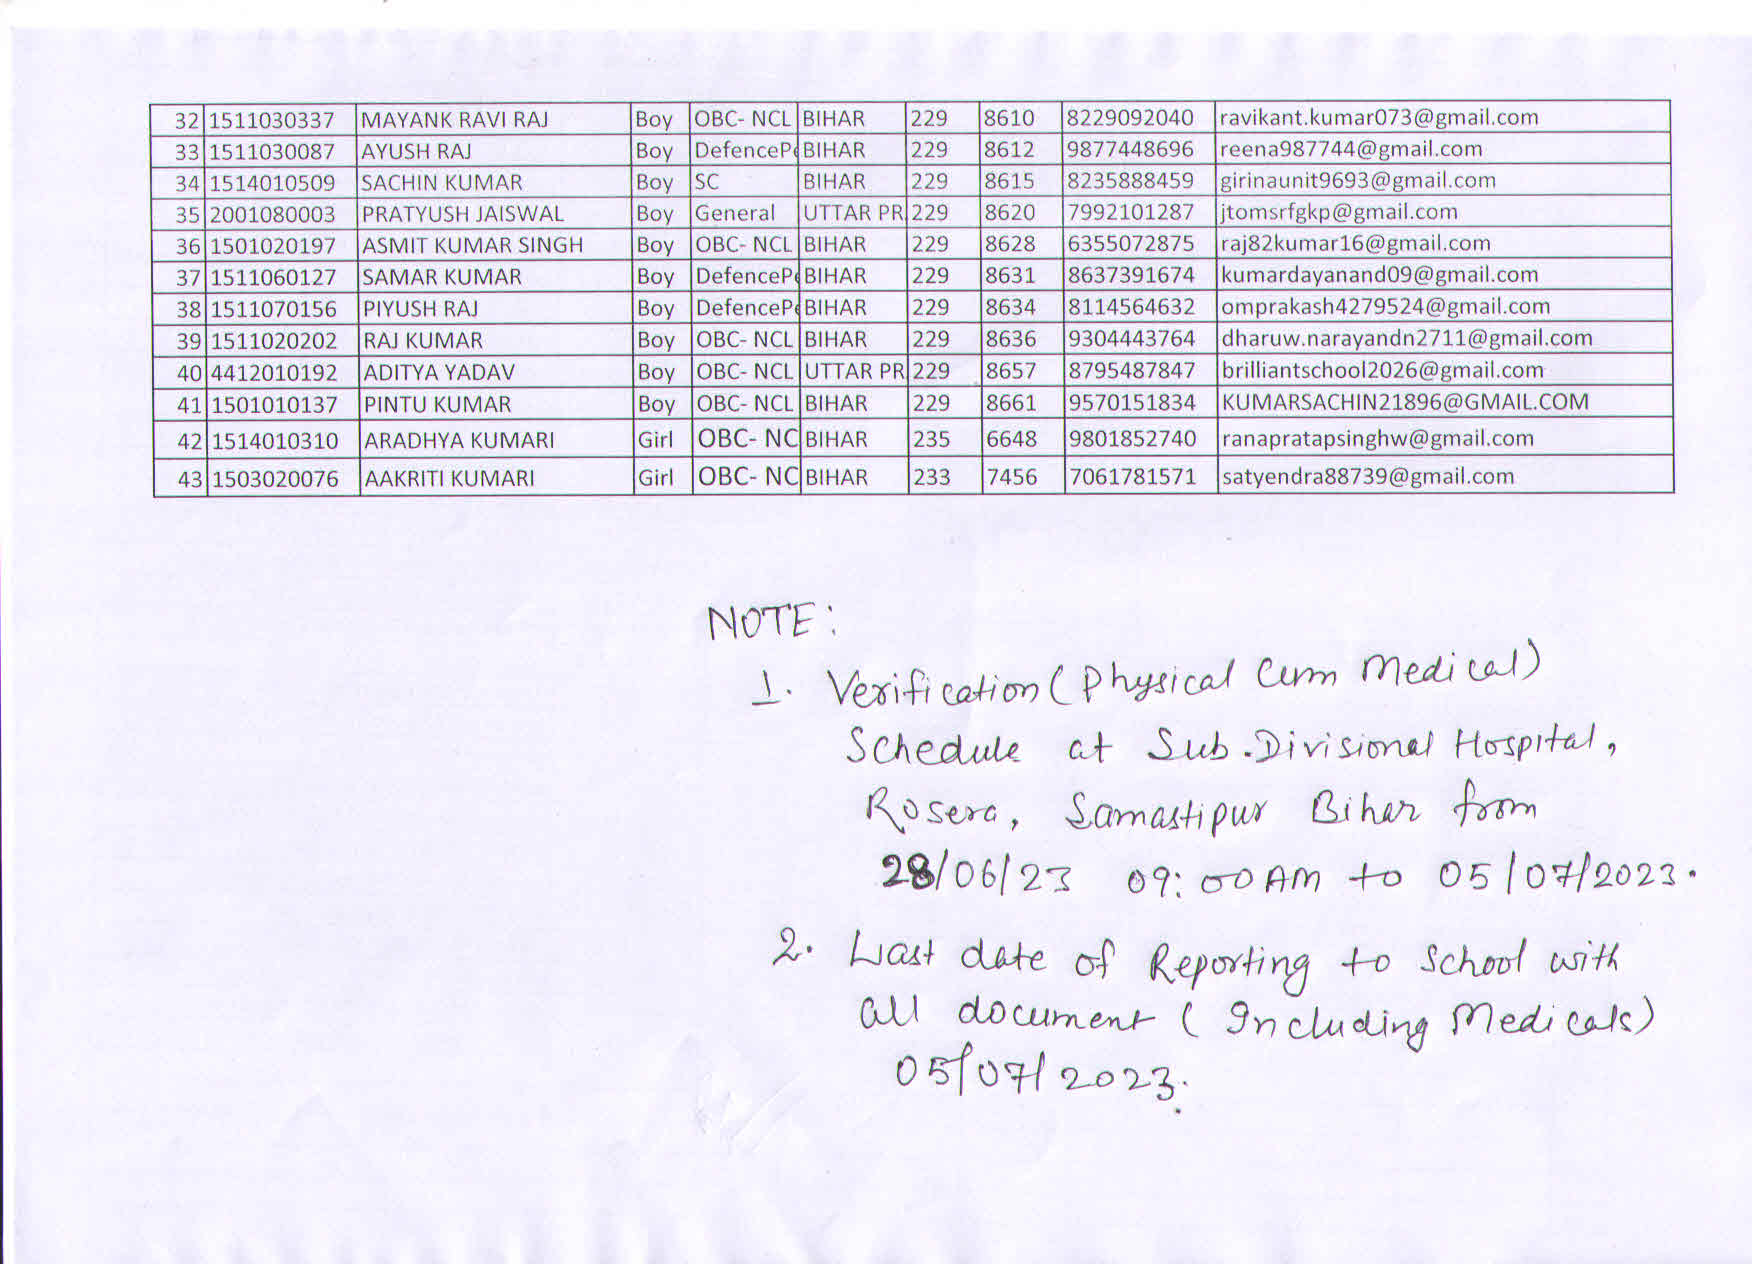 32 1511030337 MAYANK RAVI RAJ Boy OBC- NCL BIHAR 229 8610 8229092040 ravikant.kumar073@gmail.com
33 1511030087 AYUSH RAJ Boy DefencePe BIHAR 229 8612 9877448696 reena987744@gmail.com
34 1514010509 SACHIN KUMAR Boy SC BIHAR 229 8615 8235888459 girinaunit9693@gmail.com
35 2001080003 PRATYUSH JAISWAL Boy General UTTAR PR 229 8620 7992101287 jtomsrfgkp@gmail.com
36 1501020197 ASMIT KUMAR SINGH Boy OBC- NCL BIHAR 229 8628 6355072875 raj82kumar16@gmail.com
37 1511060127 SAMAR KUMAR Boy DefencePe BIHAR 229 8631 8637391674 kumardayanand09@gmail.com
38 1511070156 PIYUSH RAJ Boy DefencePe BIHAR 229 8634 8114564632 omprakash4279524@gmail.com
39 1511020202 RAJ KUMAR Boy OBC- NCL BIHAR 229 8636 9304443764 dharuw.narayandn2711@gmail.com
40 4412010192 ADITYA YADAV Boy OBC- NCL UTTAR PR 229 8657 8795487847 brilliantschool2026@gmail.com
41 1501010137 PINTU KUMAR Boy OBC- NCL BIHAR 229 8661 9570151834 KUMARSACHIN21896@GMAIL.COM
42 1514010310 ARADHYA KUMARI Girl OBC- NC BIHAR 235 6648 9801852740 ranapratapsinghw@gmail.com
43 1503020076 AAKRITI KUMARI Girl OBC- NC BIHAR 233 7456 7061781571 satyendra88739@gmail.com
NOTE:
1. Verification (Physical Cum Medical)
Schedule at Sub.Divisional Hospital,
Rosera, Samastipur Bihar from
28/06/23 09:00AM to 05/07/2023.
2. Last date of Reporting to School with
all document (Including Medicals)
05/07/2023.